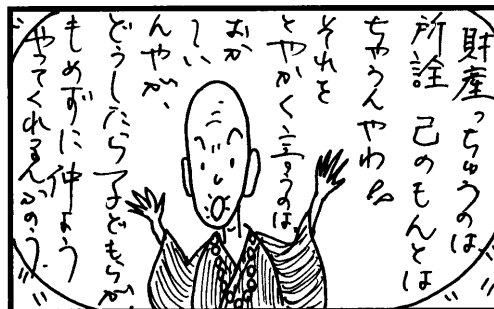 財産っちゅうのは
所詮 己のもんとは
ちゃうんやわ
それを
とやかく言うのは
おか
しい
んやが、
どうしたら子どもらが、
もめずに仲よう
やってくれるんかのう